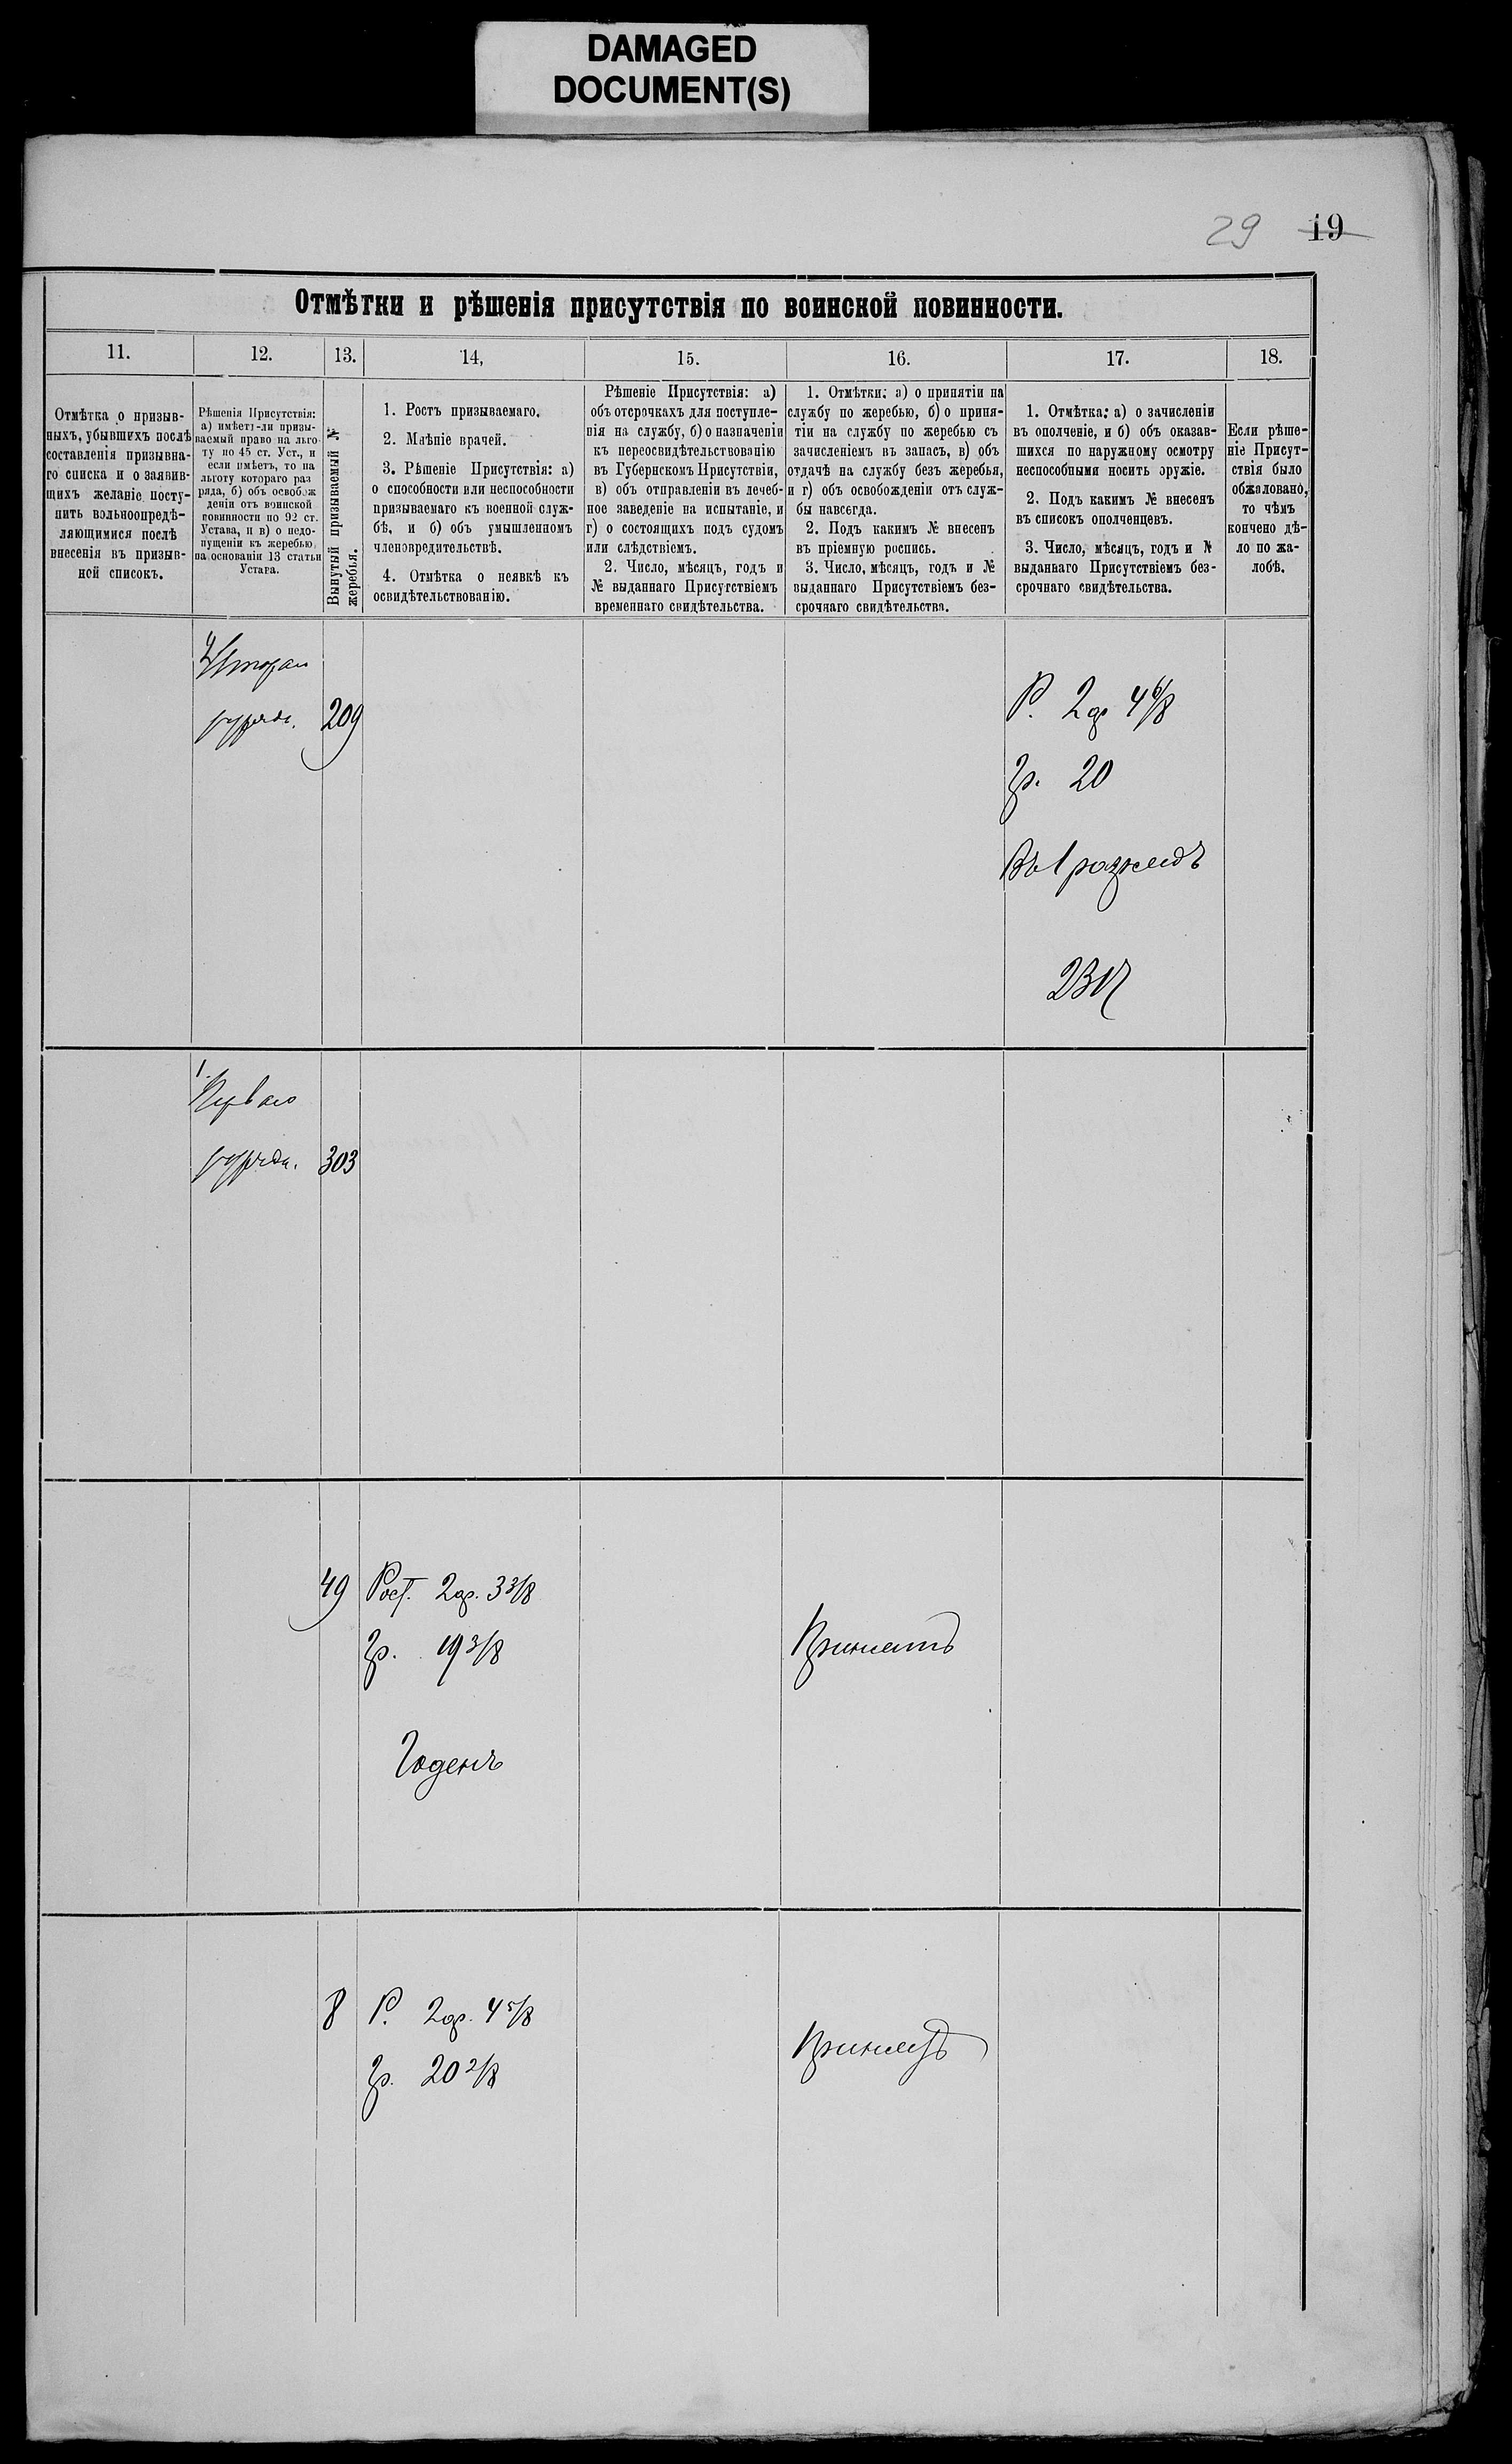 DAMAGED
DOCUMENT(S)
29 19
Отмѣтки и рѣшенія присутствія по воинской повинности.
11. 12. 13. 14, 15. 16. 17. 18.
Отмѣтка о призыв-
ныхъ, убывшихъ послѣ
составленія призывна-
го списка и о заявив-
щихъ желаніе посту-
пить вольноопредѣ-
ляющимися послѣ
внесенія въ призыв-
ной списокъ.
Рѣшенія Присутствія:
а) имѣетъ-ли призы-
ваемый право на льго-
ту по 45 ст. Уст., и
если имѣетъ, то на
льготу котораго раз
ряда, б) объ освобож
деніи отъ воинской
повинности по 92 ст.
Устава, и в) о недо-
пущеніи къ жеребью
на основаніи 13 статьи
Устава.
Вынутый призываемый №
жеребья.
1. Ростъ призываемаго.
2. Мнѣніе врачей.
3. Рѣшеніе Присутствія: а)
о способности или неспособности
призываемаго къ военной служ-
бѣ, и б) объ умышленномъ
членовредительствѣ.
4. Отмѣтка о неявкѣ къ
освидѣтельствованію.
Рѣшеніе Присутствія: а)
объ отсрочкахъ для поступле-
нія на службу, б) о назначеніи
къ переосвидѣтельствованію
въ Губернскомъ Присутствіи,
в) объ отправленіи въ лечеб-
ное заведеніе на испытаніе, и
г) о состоящихъ подъ судомъ
или слѣдствіемъ.
2. Число, мѣсяцъ, годъ и
№ выданнаго Присутствіемъ
временнаго свидѣтельства.
1. Отмѣтки: а) о принятіи на
службу по жеребью, б) о приня-
тіи на службу по жеребью съ
зачисленіемъ въ запасъ, в) объ
отдачѣ на службу безъ жеребья,
и г) объ освобожденіи отъ служ-
бы навсегда.
2. Подъ какимъ № внесенъ
въ пріемную роспись.
3. Число, мѣсяцъ, годъ и №
выданнаго Присутствіемъ без-
срочнаго свидѣтельства.
1. Отмѣтка: а) о зачисленіи
въ ополченіе, и б) объ оказав-
шихся по наружному осмотру
неспособными носить оружіе.
2. Подъ какимъ № внесенъ
въ списокъ ополченцевъ.
3. Число, мѣсяцъ, годъ и №
выданнаго Присутствіемъ без-
срочнаго свидѣтельства.
Если рѣше-
ніе Присут-
ствія было
обжаловано,
то чѣмъ
кончено дѣ-
ло по жа-
лобѣ.
разряда. 209
Р. 2 ар 4 6/8
Гр. 20
Въ 1 разрядъ
1.
Перваго
разряда. 303
49 Рост. 2 ар. 3 3/8
Гр. 19 3/8
Годенъ
Принятъ
8 Р. 2 ар. 4 5/8
Гр. 20 2/8
Принятъ